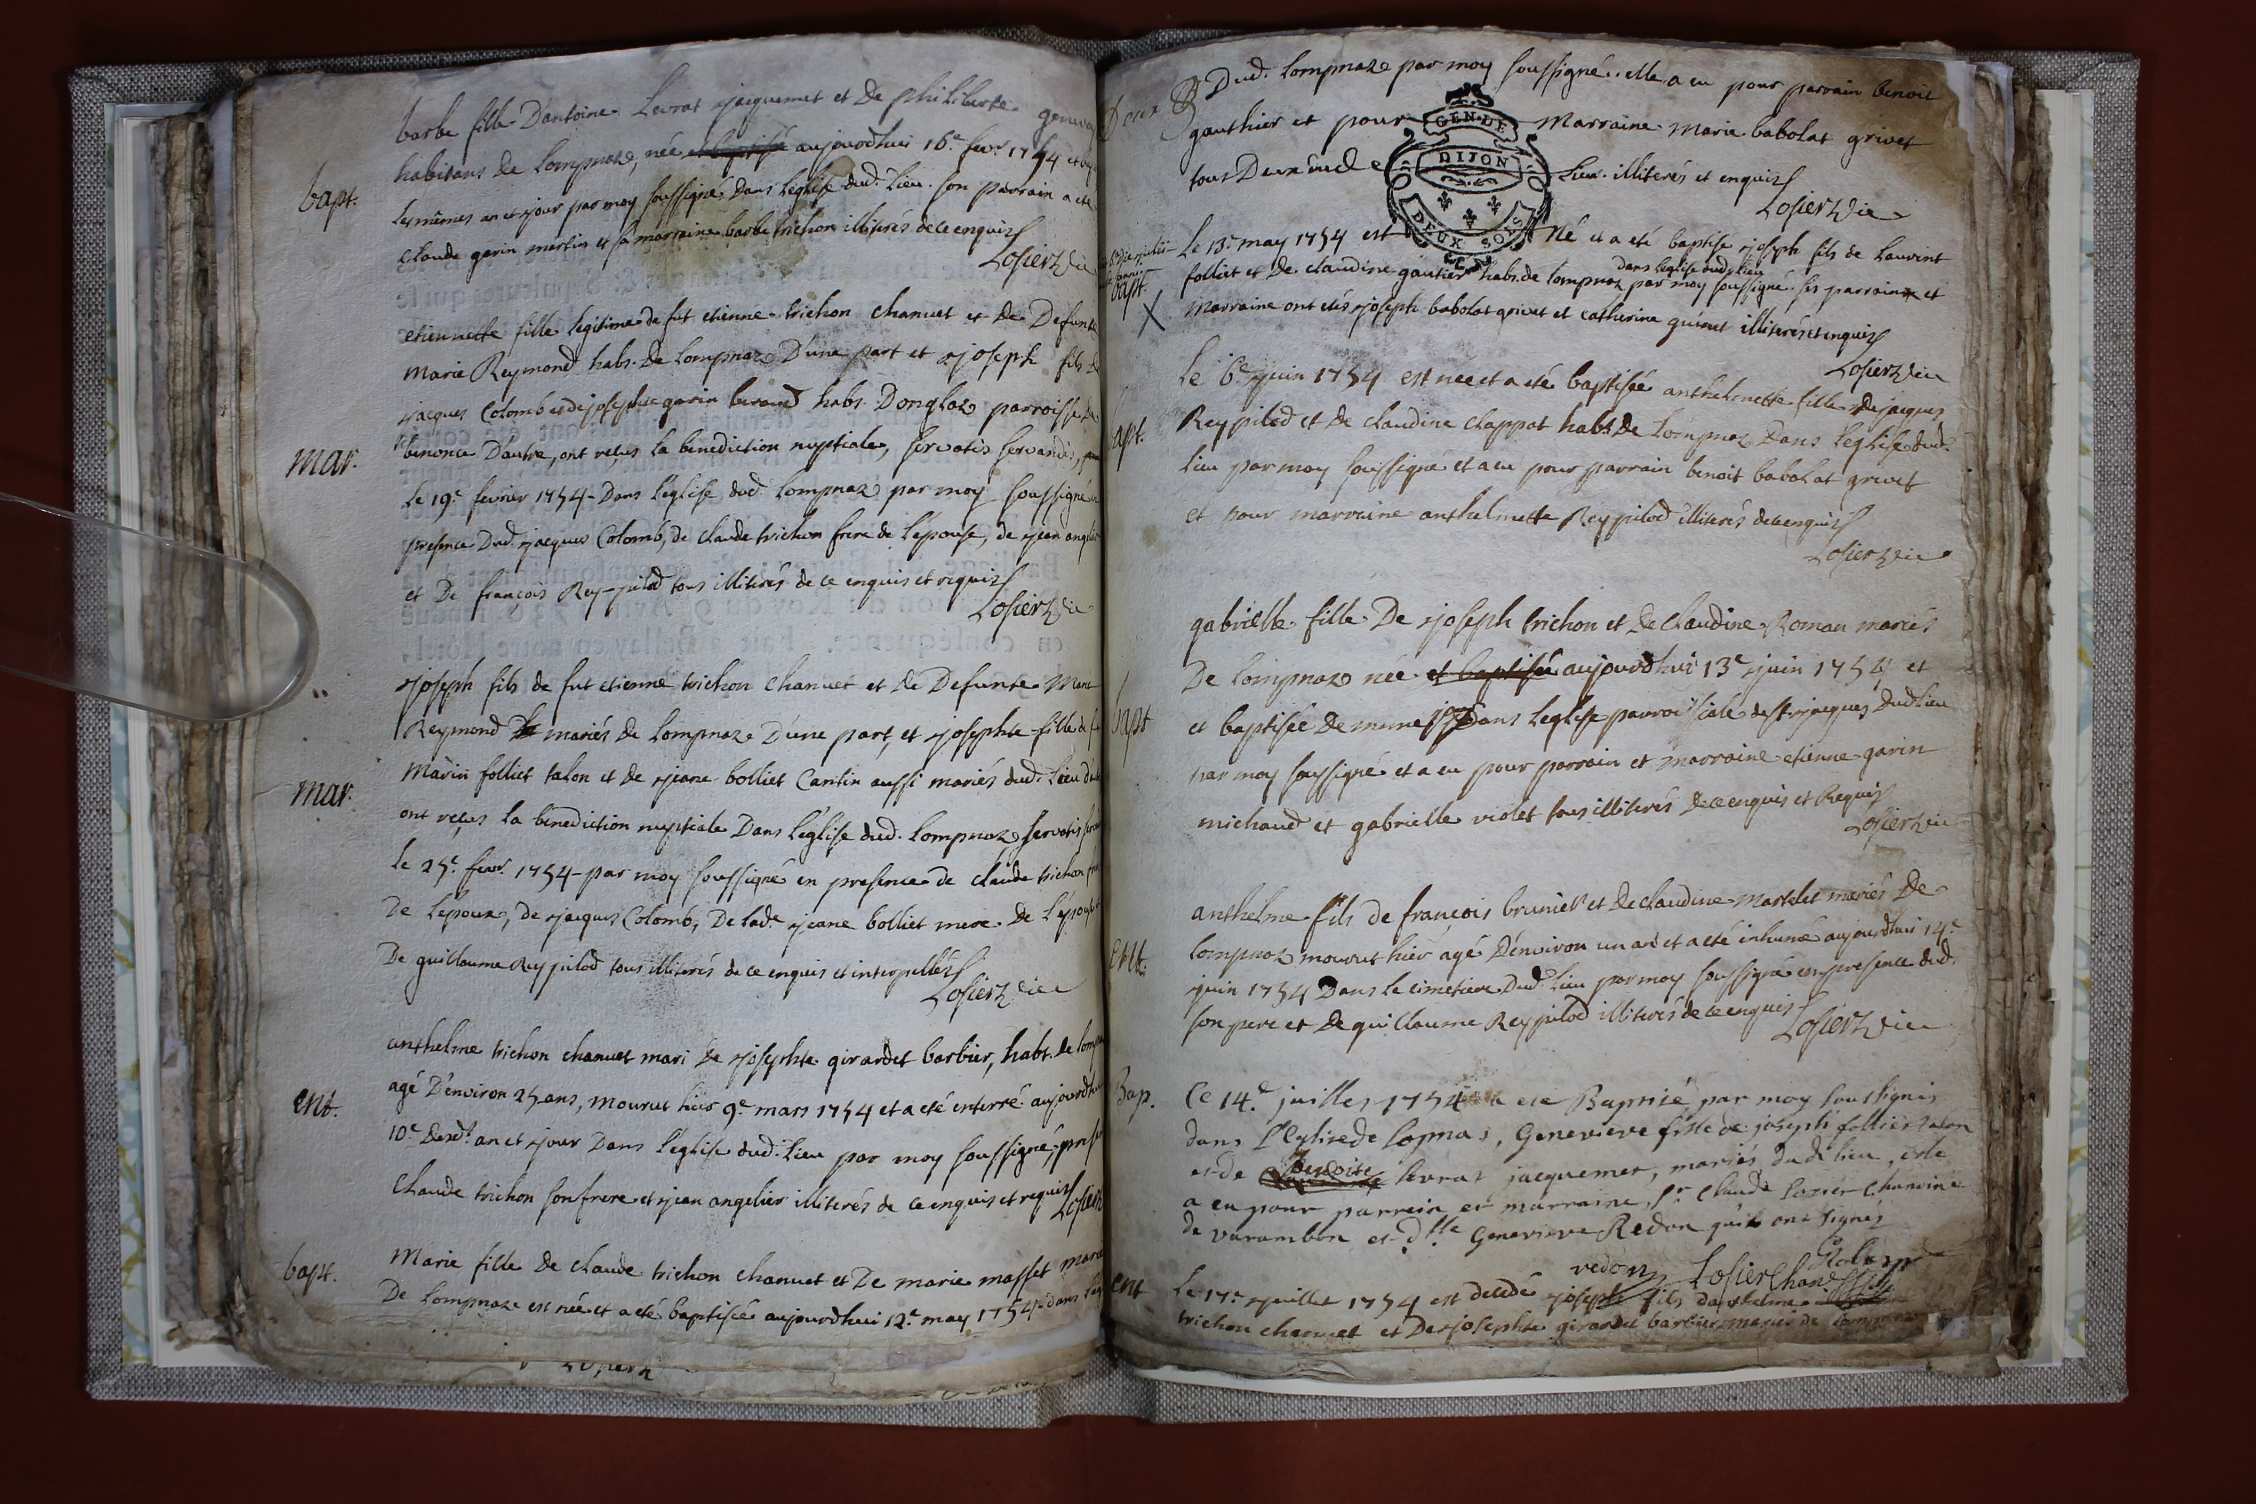 barbe fille D'antoine Levrat jacquemet et de philiberte
bapt.
habitans de Lompnaz, née et baptisé aujourdhui 16e fevr 1754 et
les mêmes an et jour par moy soussigné dans l'eglise dud. Lieu. son parrain a ete
claude garin martin et sa marraine barbe trichon illiterés de ce enquis
Losier Vic
etiennette fille legitime de fut etienne trichon chanuet et de Defunte
marie Reymond habs. de Lompnaz D'une part et joseph fils de
jacques Colomb et de josephte garin beraud habs. Donglaz parroisse de
mar.
st benonce D'autre, ont reçus la benediction nuptiale, servatis servandis,
le 19e fevrier 1754 Dans l'eglise dud. Lompnaz par moy soussigné
presence Dud. jacques Colomb, de claude trichon frere de l'epouse, de jean angelier
et De françois Rey-pilod tous illiterés de ce enquis et requis
Losier Vic
joseph fils de fut etienne trichon chanuet et de Defunte Marie
Reymond mariés de Lompnaz D'une part, et josephte fille de
mar.
Marin folliet talon et de jeane bolliet Cantin aussi mariés dud. Lieu
ont reçus la benediction nuptiale Dans l'eglise dud. Lompnaz servatis
le 25e fevr. 1754 par moy soussigné en presence de claude trichon
De l'epoux, de jacques Colomb, De lade jeane bolliet mere de l'epouse
De guillaume Reypilod tous illiterés de ce enquis et interpellés
Losier Vic
anthelme trichon chanuet mari de josephte girardet barbier, habt. de
ent.
agé D'environ 25 ans, mourut hier 9e mars 1754 et a eté enterré aujourdhui
10e desd. an et jour Dans l'eglise dud. Lieu par moy soussigné,
Claude trichon son frere et jean angelier illiterés de ce enquis et requis
Losier
bapt.
Marie fille de claude trichon chanuet et De marie masset
De Lompnaz est née et a eté baptisée aujourdhui 12e may 1754 dans
Losier
Dud. Lompnaz par moy soussigné. elle a eu pour parrain benoit
gauthier et pour Marraine Marie babolat grivet
tous Deux dud. Lieu illiterés et enquis
GEN. DE
DIJON
DEUX SOLS
Losier Vic
Le 13e may 1754 est Né et a eté baptisé joseph fils de Laurent
bapt.
folliet et de claudine gautier habs. de Lompnaz dans l'eglise dud. lieu par moy soussigné. ses parrain et
X
Marraine ont etés joseph babolat grivet et catherine guinet illiterés et enquis
Losier Vic
Le 6e juin 1754 est née et a eté baptisée anthelmette fille de jacques
apt.
Reypilod et de claudine clappat habs. De Lompnaz Dans l'eglise dud.
lieu par moy soussigné et a eu pour parrain benoit babolat grivet
et pour marraine anthelmette Reypilod illiterés de ce enquis
Losier Vic
gabrielle fille De joseph trichon et de claudine Roman mariés
De Lompnaz née et baptisée aujourdhui 13e juin 1754 et
bapt
et baptisée De meme jour Dans l'eglise parroissiale de St jacques dud Lieu
par moy soussigné et a eu pour parrain et marraine etienne garin
michaud et gabrielle violet tous illiterés de ce enquis et Requis
Losier Vic
anthelme fils de francois brunier et de claudine martelet mariés De
ent.
Lompnaz mourut hier agé D'environ un an et a eté inhumé aujourdhui 14e
juin 1754 Dans le cimetiere Dud. Lieu par moy soussigné en presence dud.
son pere et de guillaume Reypilod illiterés de ce enquis
Losier Vic
Bap.
Ce 14e juillet 1754 a ete Baptisé par moy soussignés
dans l'Eglise de Lopnas, Genevieve fille de joseph folliet talon
et de benoite levrat jacquemet, mariés dudi lieu, elle
a eu pour parrein et marraine, Sr Claude Lozier Chanoine
de varambon et dlle Genevieve Redon qui ont signés
redon Losier Chane
ent
Le 17e juillet 1754 est decedé joseph fils danthelme
trichon chanuet et De josephte girardet barbier mariés de Lompnaz